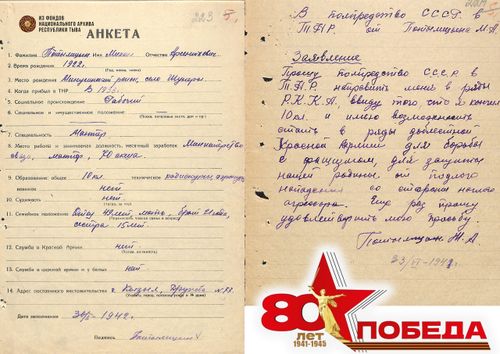 ИЗ ФОНДОВ
НАЦИОНАЛЬНОГО АРХИВА
РЕСПУБЛИКИ ТЫВА
223
АНКЕТА
1. Фамилия Имя Отчество
2. Время рождения 1922 г.
3. Место рождения
4. Когда прибыл в ТНР В
5. Социальное происхождение Рабочий
6. Социальное и имущественное положение
7. Специальность Монтер
8. Место работы и занимаемая должность, месячный заработок
монтер, 70 акша.
9. Образование: общее 10 кл. техническое
военное нет
10. Судимость нет
11. Семейное положение Отец 49 лет, мать, брат
сестра 15 лет.
12. Служба в Красной Армии нет
13. Служба в царской армии и у белых нет
14. Адрес постоянного местожительства г. Кызыл,
Дата заполнения 1942 г.
Подпись
В полпредство СССР в
Т.Н.Р. от
Заявление
Прошу полпредство СССР в
Т.Н.Р. направить меня в ряды
Р.К.К.А, ввиду того что я кончил
10 кл. и имею возможность
стать в ряды доблестной
Красной Армии для борьбы
с фашизмом, для защиты
нашей родины от подлого
нападения со стороны
агрессора. Еще раз прошу
удовлетворить мою просьбу.
80 ПОБЕДА
лет
1941-1945